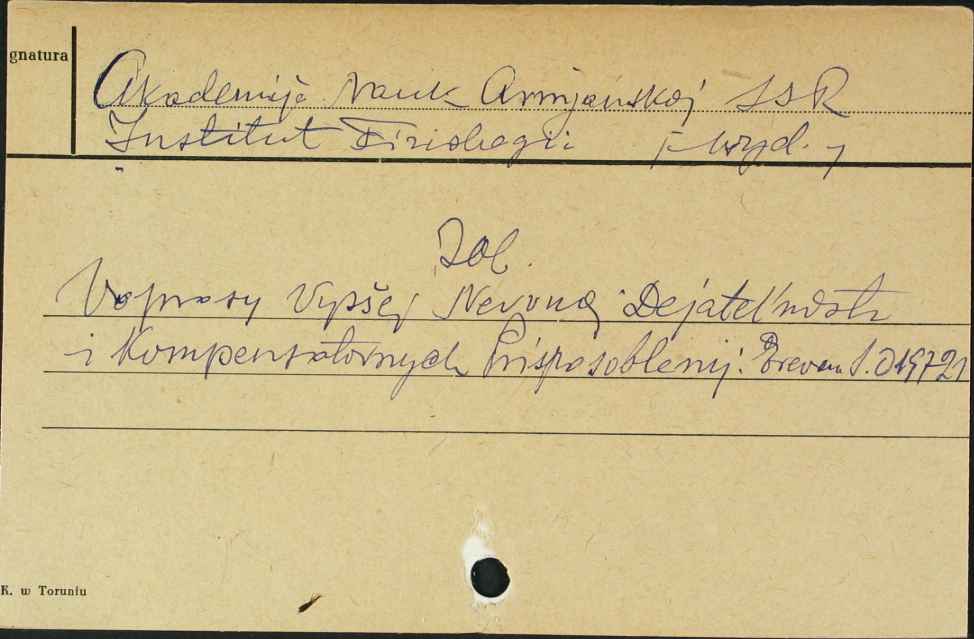 gnatura
Akademija Nauk Armjanskoj SSR
Institut Fiziologii [-wyd.-]
Zob.
Voprosy Vysšej Nervnoj Dejatel'nosti
i Kompensatornych Prisposoblenij.
K. w Toruniu